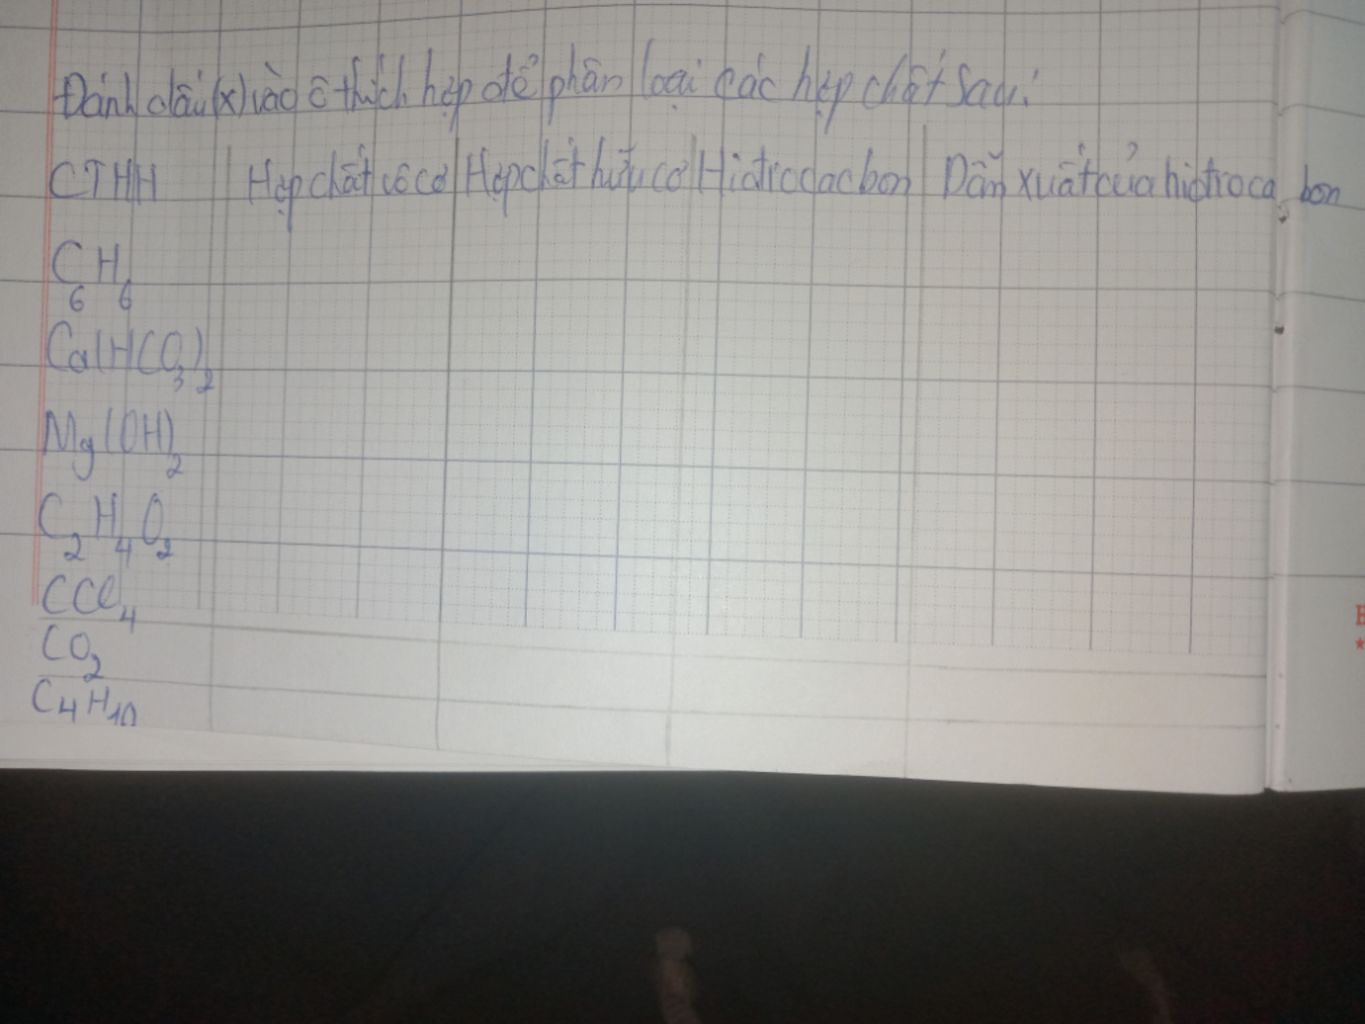 Đánh dấu(x) vào ô thích hợp để phân loại các hợp chất sau:
CTHH | Hợp chất vô cơ | Hợp chất hữu cơ | Hiđrocacbon | Dẫn xuất của hiđroca bon
C6H6
Ca(HCO3)2
Mg(OH)2
C2H4O2
CCl4
CO2
C4H10